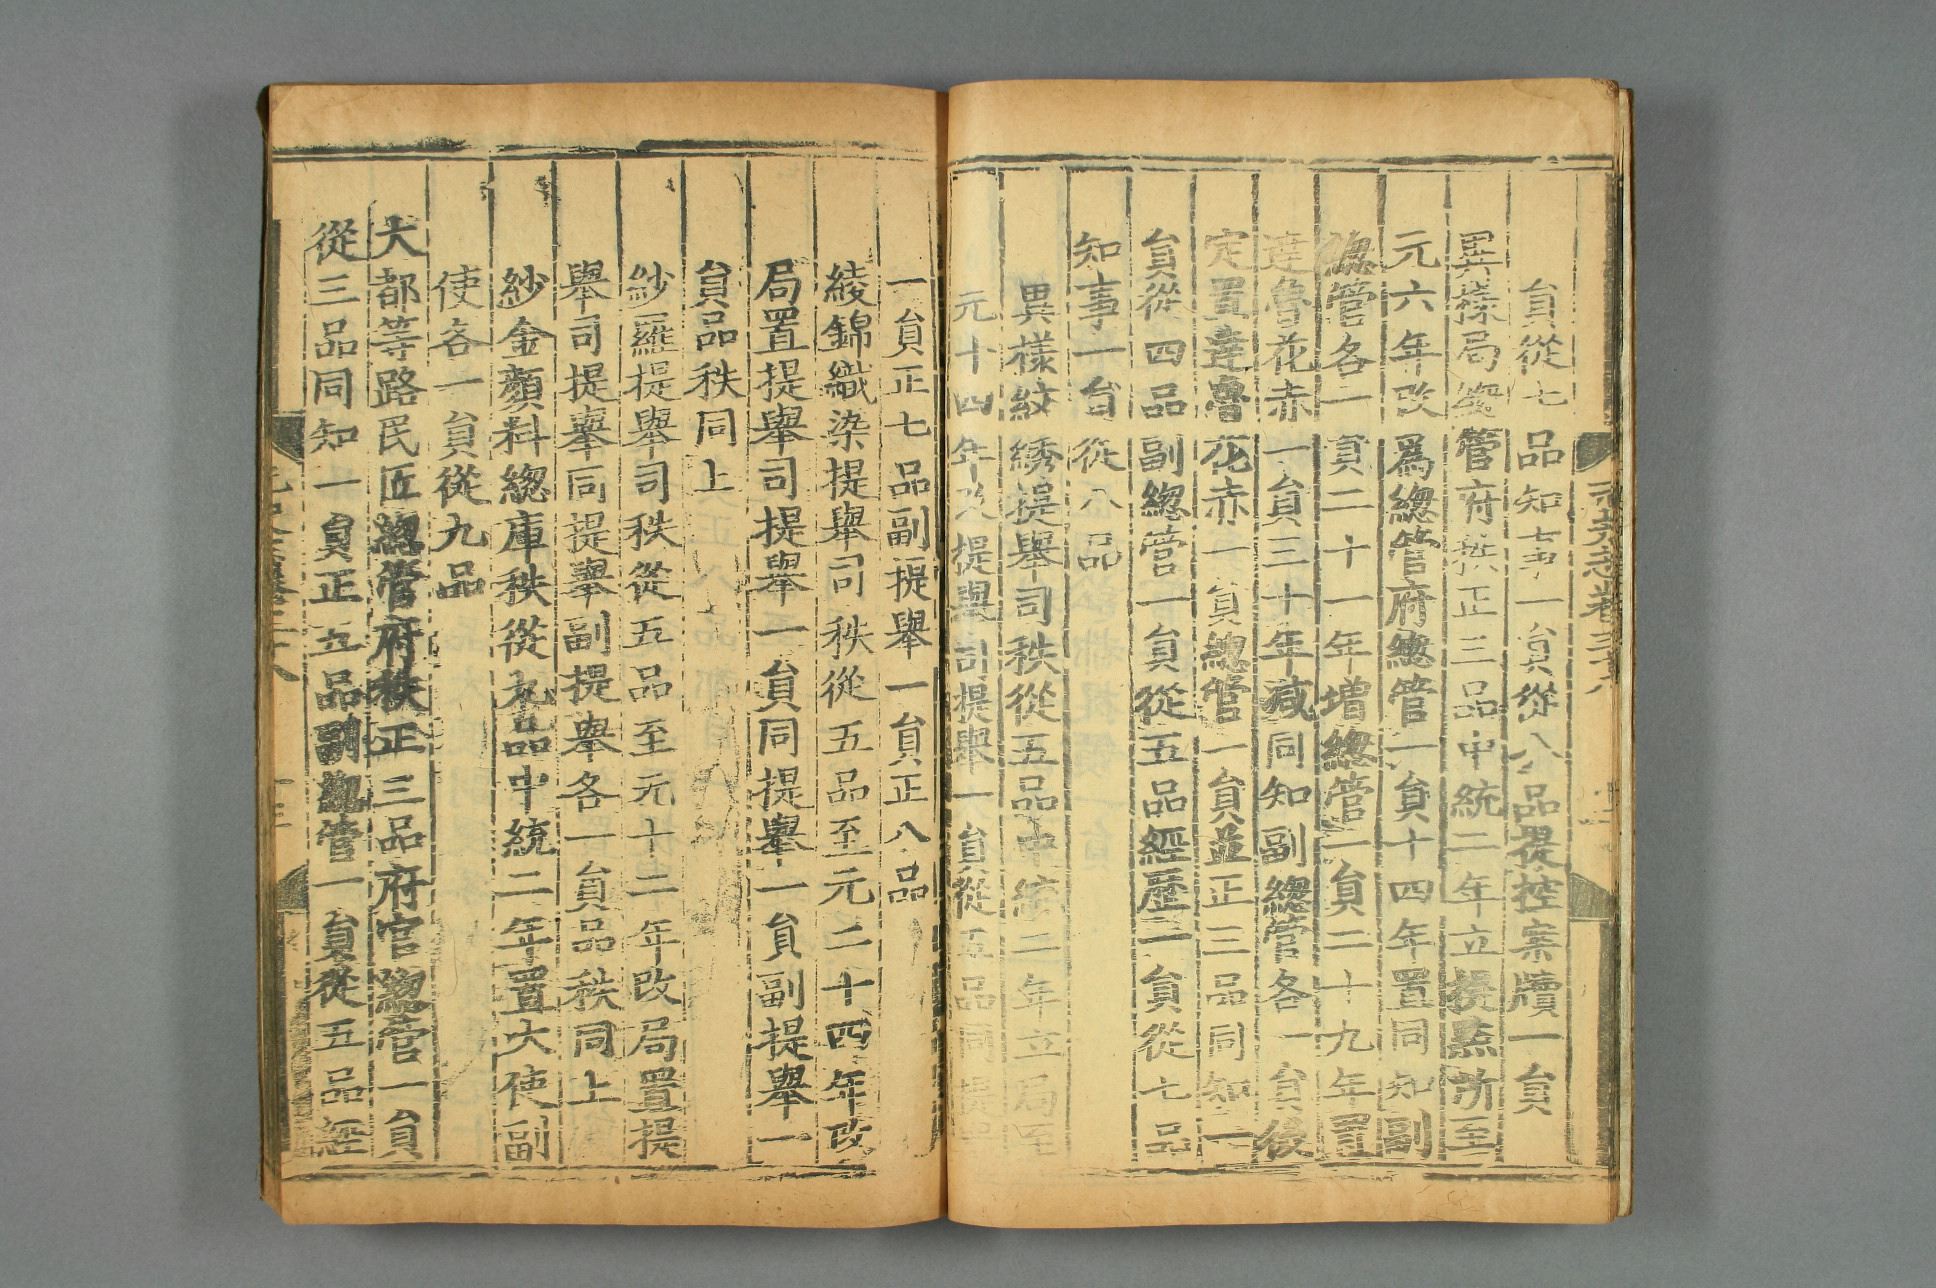 員從七品知事一員從八品提控案牘一員
異樣局總管府秩正三品中統二年立提㸃所至
元六年改爲總管府總管一員十四年置同知副
總管各一員二十一年增總管一員二十九年置
達魯花赤一員三十年減同知副總管各一員後
定置達魯花赤一員總管一員並正三品同知一
員從四品副總管一員從五品經歷二員從七品
知事一員從八品
異樣紋綉提舉司秩從五品中統二年立局至
元十四年改提舉司提舉一員從五品同提舉
一員正七品副提舉一員正八品
綾錦織染提舉司秩從五品至元二十四年改
局置提舉司提舉一員同提舉一員副提舉一
員品秩同上
紗羅提舉司秩從五品至元十二年改局置提
舉司提舉同提舉副提舉各一員品秩同上
紗金顏料總庫秩從九品中統二年置大使副
使各一員從九品
大都等路民匠總管府秩正三品府官總管一員
從三品同知一員正五品副總管一員從五品經